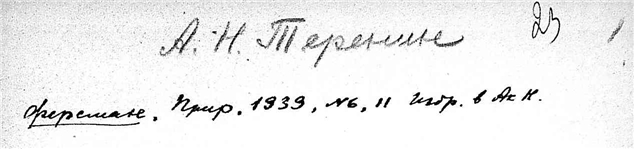 23
А. Н. Теренин
Ферсман. Прир. 1939, №6, 11 Избр. в Ак Н.